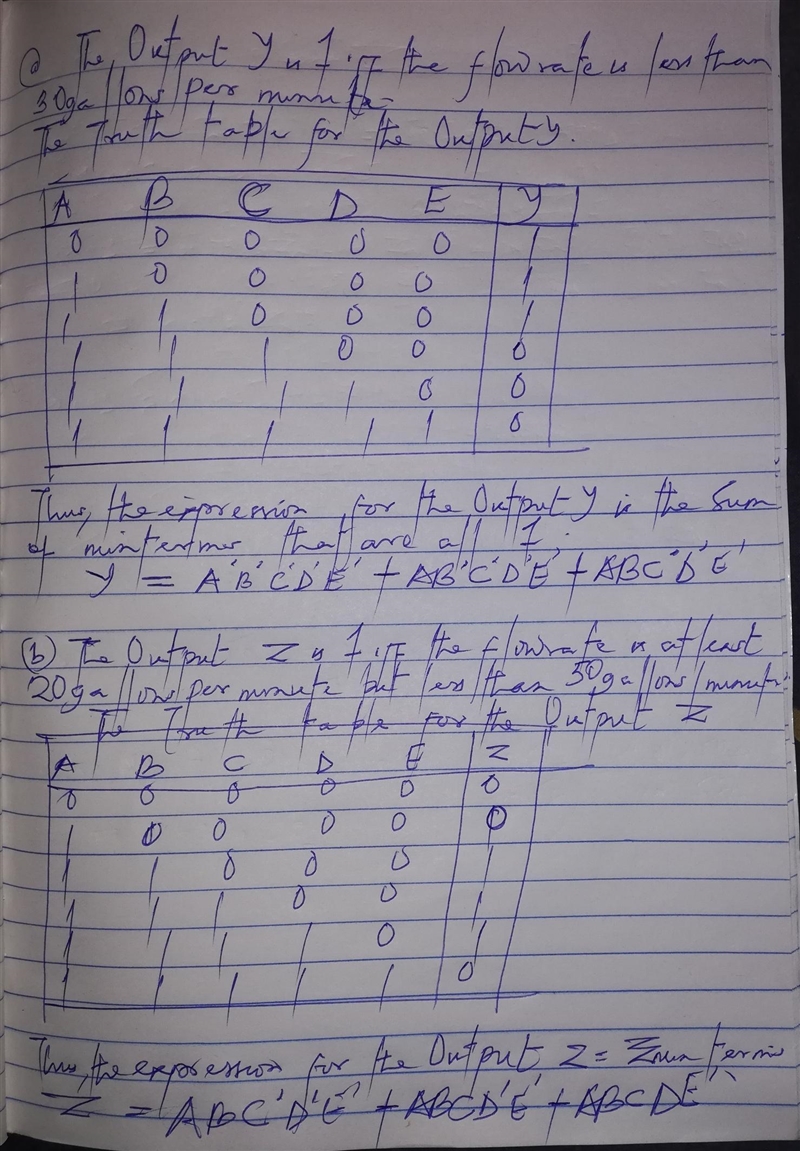 a) The Output Y is 1 iff the flowrate is less than
30gallons/per minute.
The Truth table for the Output Y.
A B C D E Y
0 0 0 0 0 1
1 0 0 0 0 1
1 1 0 0 0 1
1 1 1 0 0 0
1 1 1 1 0 0
1 1 1 1 1 0
Thus, the expression for the Output Y is the Sum
of minterms that are all 1.
Y = A'B'C'D'E' + AB'C'D'E' + ABC'D'E'
(b) The Output Z is 1 iff the flowrate is at least
20gallons per minute but less than 50gallons/minute.
The Truth table for the Output Z
A B C D E Z
0 0 0 0 0 0
1 0 0 0 0 0
1 1 0 0 0 1
1 1 1 0 0 1
1 1 1 1 0 1
1 1 1 1 1 0
Thus, the expression for the Output Z = Σminterms
Z = ABC'D'E' + ABCD'E' + ABCDE'